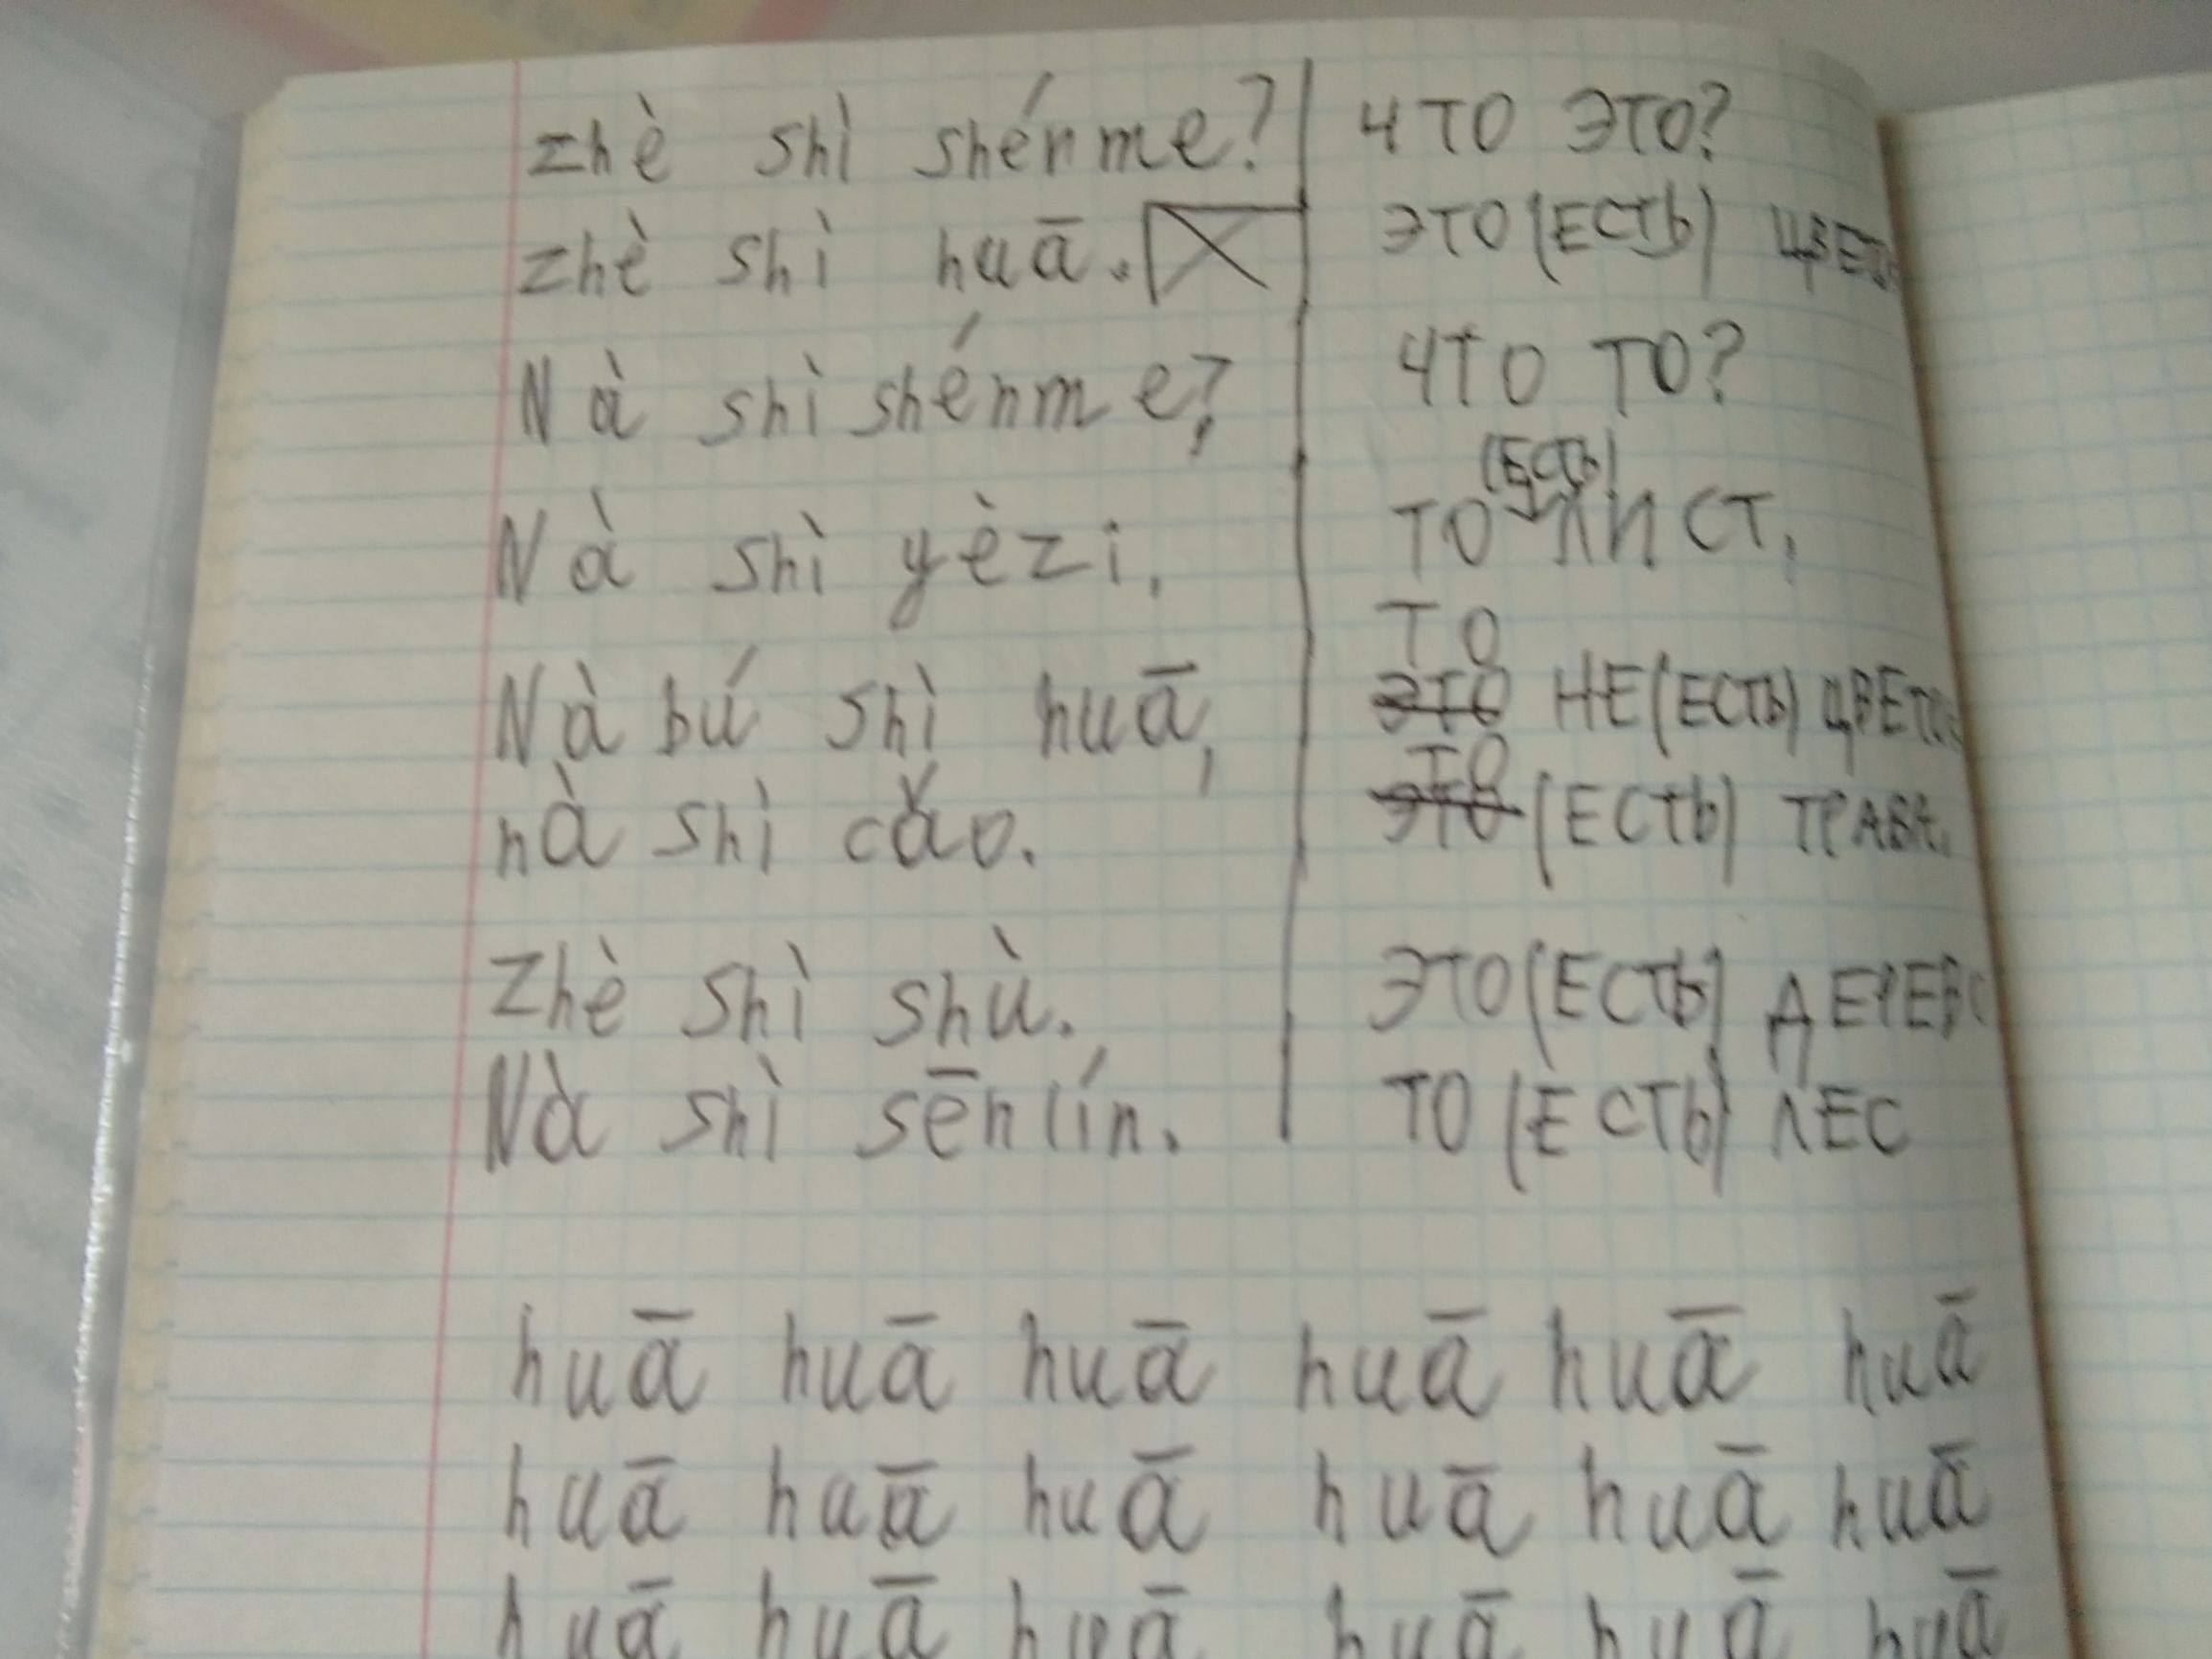 zhè shì shénme? ЧТО ЭТО?
zhè shì huā. ЭТО (ЕСТЬ)
Nà shì shénme? ЧТО ТО?
(ЕСТЬ)
Nà shì yèzi. ТО ЛИСТ.
ТО
Nà bú shì huā, ЭТО НЕ (ЕСТЬ)
ТО
nà shì cǎo. ЭТО (ЕСТЬ) ТРАВА.
Zhè shì shù. ЭТО (ЕСТЬ) ДЕРЕВО
Nà shì sēnlín. ТО (ЕСТЬ) ЛЕС
huā huā huā huā huā huā
huā huā huā huā huā huā
huā huā huā huā huā huā